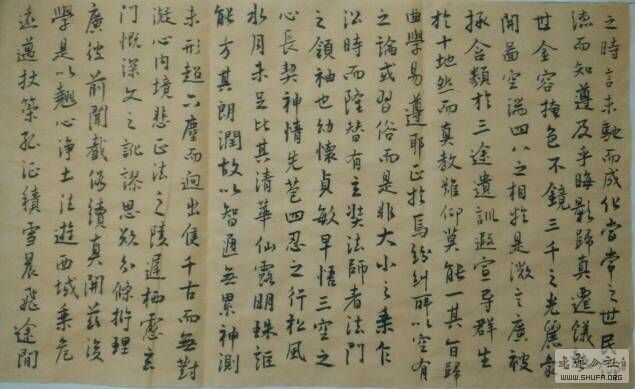 之時言未馳而成化當常之世民
德而知遵及乎晦影歸真遷儀越
世金容掩色不鏡三千之光麗象
開圖空端四八之相於是微言廣被
拯含類於三途遺訓遐宣導群生
於十地然而真教難仰莫能一其旨歸
曲學易遵耶正於焉紛糾所以空有
之論或習俗而是非大小之乘乍
沿時而隆替有玄奘法師者法門
之領袖也幼懷貞敏早悟三空之
心長契神情先苞四忍之行松風
水月未足比其清華仙露明珠詎
能方其朗潤故以智通無累神測
未形超六塵而迥出隻千古而無對
凝心內境悲正法之陵遲栖慮玄
門慨深文之訛謬思欲分條析理
廣彼前聞截偽續真開茲後
學是以翹心淨土法遊西域乘危
遠邁杖策孤征積雪晨飛途間
WWW.SHUFA.ORG